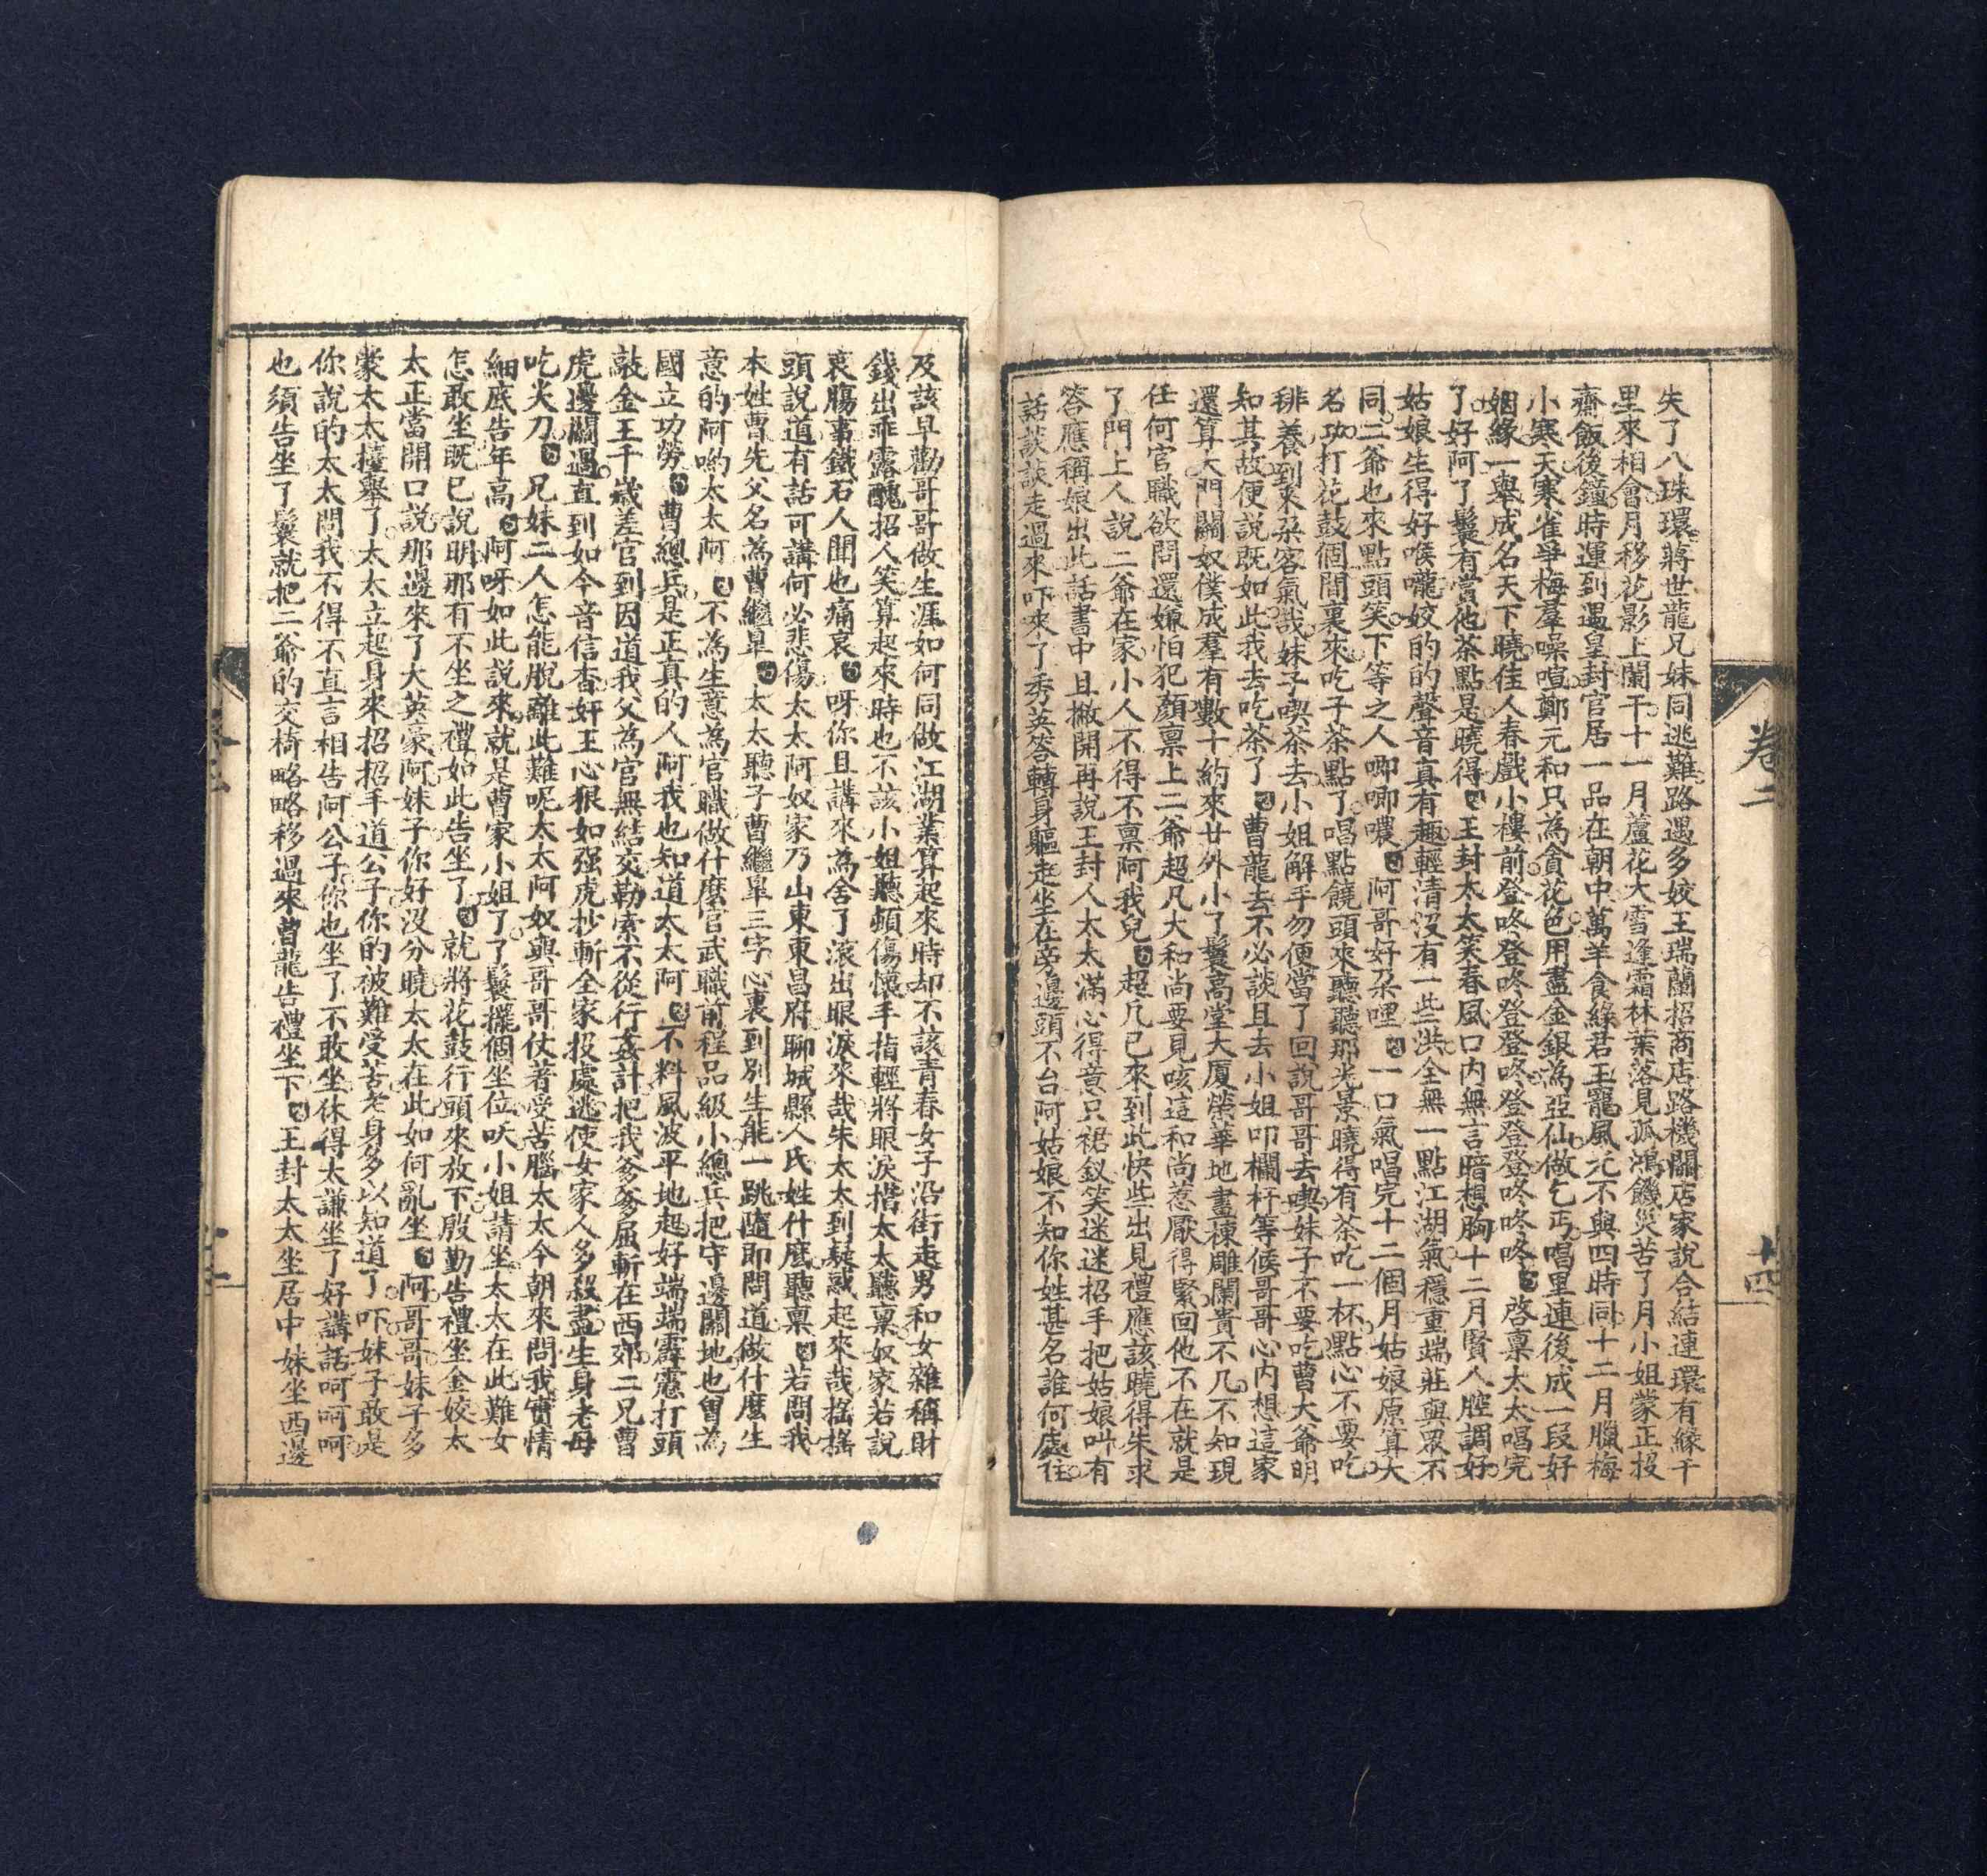 卷二
十四
失了八珠環蔣世龍兄妹同逃難路遇多姣王瑞蘭招商店路機關店家說合結連環有緣千
里來相會月移花影上闌干十一月蘆花大雪逢霜林葉落見孤鴻饑災苦了月小姐蒙正投
齋飯後鐘時運到遇皇封官居一品在朝中萬羊食綠君王寵風光不與四時同十二月臘梅
小寒天寒雀爭梅羣噪喧鄭元和只為貪花色用盡金銀為亞仙做乞丐唱里連後成一段好
姻緣一舉成名天下曉佳人春戲小樓前登咚登咚登登咚登登登咚咚咚 啓禀太太唱完
了好阿了鬟有當他茶點是曉得 王封太太笑春風口內無言暗想胸十二月賢人腔調好
姑娘生得好喉嚨姣的的聲音真有趣輕清沒有一些洪全無一點江湖氣穩重端莊與眾不
同二爺也來點頭笑下等之人唧唧噥 阿哥好朶哩 一口氣唱完十二個月姑娘原算大
名功打花鼓個間裏來吃子茶點了唱點饒頭來聽聽那光景曉得有茶吃一杯點心不要吃
徘養到來朶客氣哉妹子喫茶去小姐解手勿便當了回說哥哥去喫妹子不要吃曹大爺明
知其故便說既如此我去吃茶了 曹龍去不必談且去小姐叩欄杆等候哥哥心內想這家
還算大門關奴僕成羣有數十約來廿外小了鬟高堂大厦榮華地畫棟雕闌貴不凡不知現
任何官職欲問還嫌怕犯顏禀上二爺超凡大和尚要見咳這和尚惹厭得緊回他不在就是
了門上人說二爺在家小人不得不禀阿我兒 超凡已來到此快些出見禮應該曉得朱求
答應稱娘出此話書中且撇開再說王封人太太滿心得意只裙釵笑迷迷招手把姑娘叫有
話談談走過來吓來了秀英答轉身軀走坐在旁邊頭不台阿姑娘不知你姓甚名誰何處住
及該早勸哥哥做生涯如何同做江湖業算起來時却不該青春女子沿街走男和女雜稱財
錢出乖露醜招人笑算起來時也不該小姐聽頓傷懷手指輕將眼淚揩太太聽禀奴家若說
衷腸事鐵石人聞也痛哀 呀你且講來為舍了滾出眼淚來哉朱太太到疑惑起來哉搖搖
頭說道有話可講何必悲傷太太阿奴家乃山東東昌府聊城縣人氏姓什麽聽禀 若問我
本姓曹先父名為曹繼臯 太太聽子曹繼臯三字心裏到別生能一跳隨即問道做什麽生
意的阿喲太太阿 不為生意為官職做什麽官武職前程品級小總兵把守邊關地也曾為
國立功勞 曹總兵是正真的人阿我也知道太太阿 不料風波平地起好端端霹靂打頭
敲金王千歲差官到因道我父為官無結交勒索不從行姦計把我爹爹屈斬在西郊二兄曹
虎邊關過直到如今音信杳奸王心狠如强虎抄斬全家投處逃使女家人多殺盡生身老母
吃火刀 兄妹二人怎能脫離此難呢太太阿奴與哥哥仗著受苦腦太太今朝來問我實情
細底告年高 阿呀如此說來就是曹家小姐了了鬟擺個坐位吓小姐請坐太太在此難女
怎敢坐既已說明那有不坐之禮如此告坐了 就將花鼓行頭來放下殷勤告禮坐金姣太
太正當開口說那邊來了大英豪阿妹子你好沒分曉太太在此如何亂坐 阿哥哥妹子多
蒙太太擡舉了太太立起身來招招手道公子你的被難受苦老身多以知道了吓妹子敢是
你說的太太問我不得不直言相告阿公子你也坐了不敢坐休得太謙坐了好講話呵呵呵
也須告坐了鬟就把二爺的交椅略略移過來曹龍告禮坐下 王封太太坐居中妹坐西邊